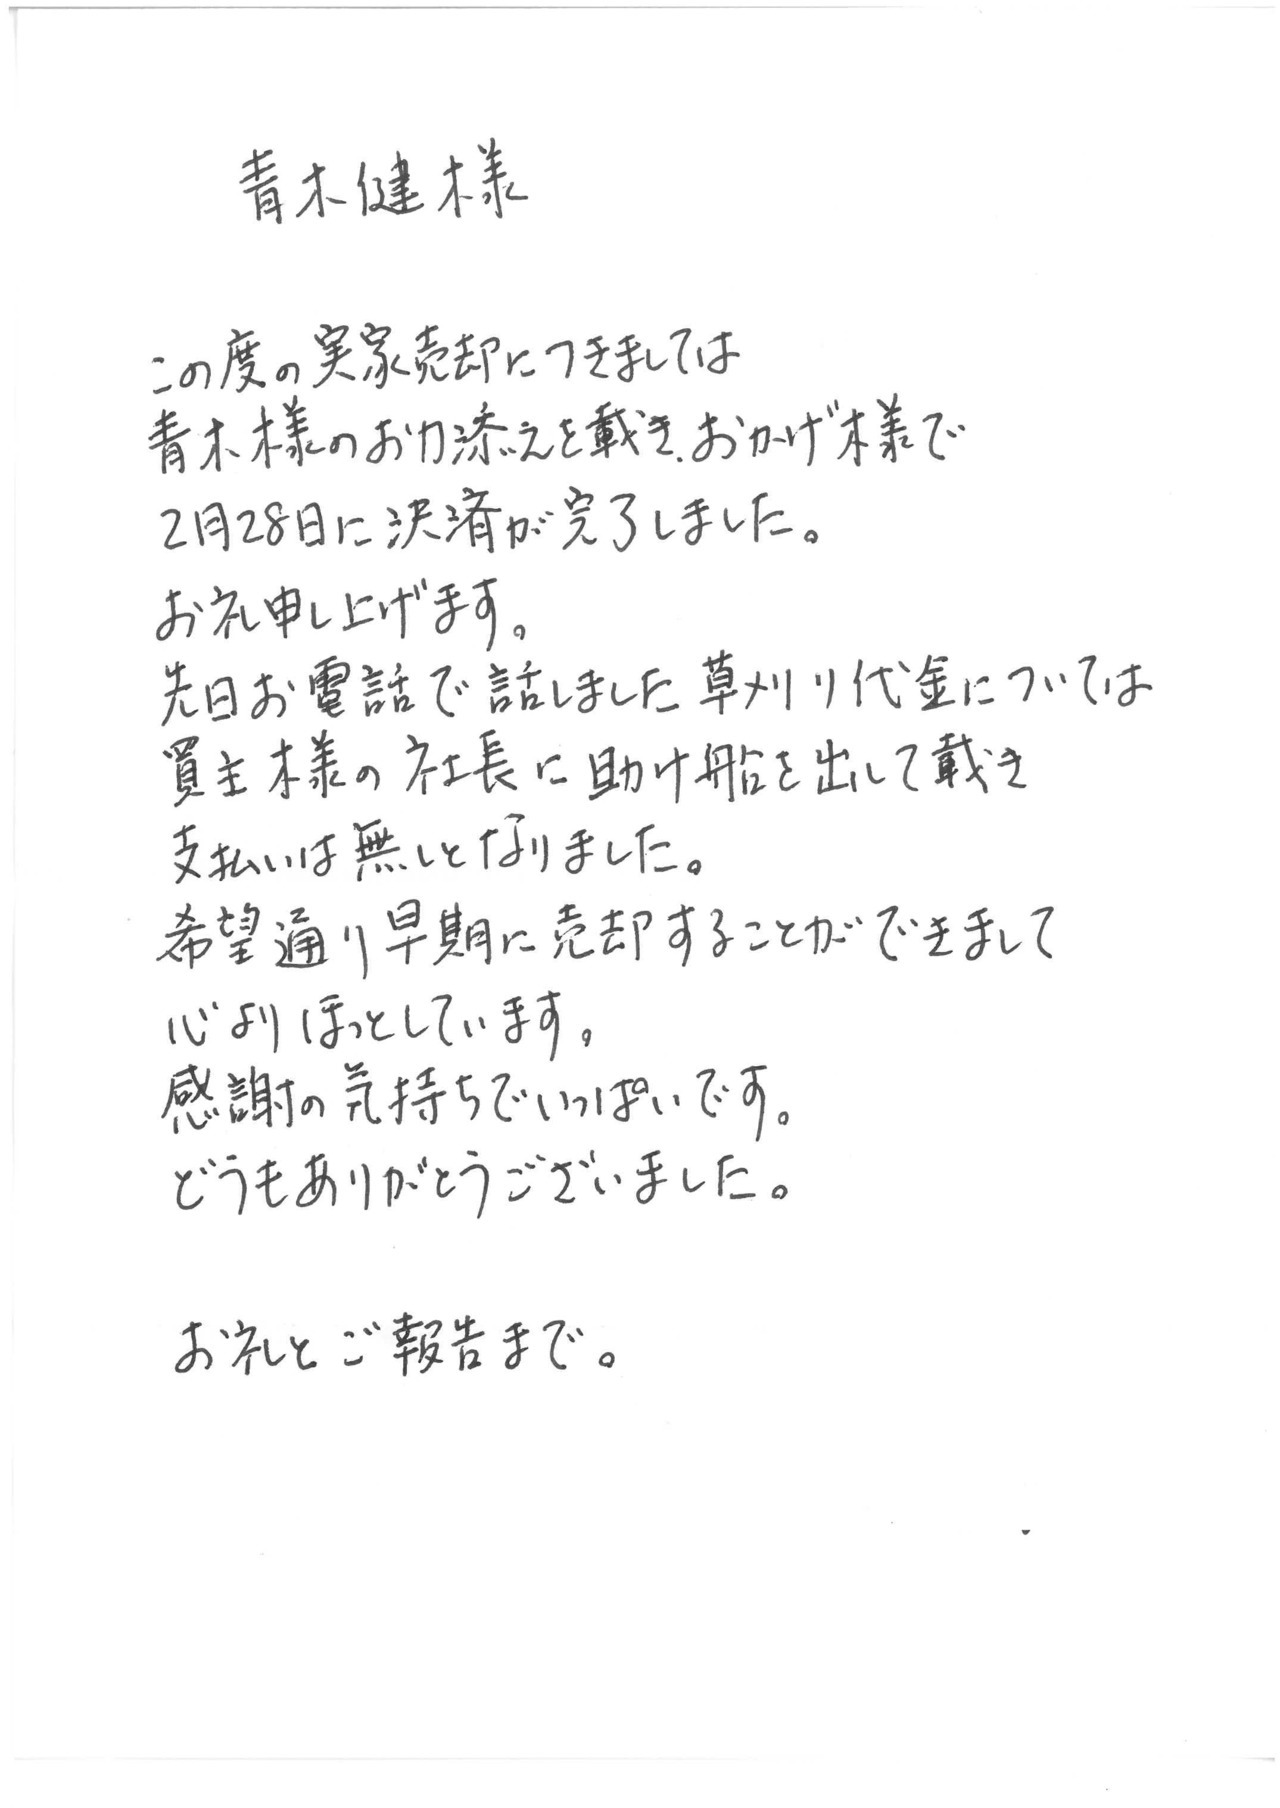 青木健様
この度の実家売却につきましては
青木様のお力添えを載き、おかげ様で
2月28日に決済が完了しました。
お礼申し上げます。
先日お電話で話しました草刈り代金については
買主様の社長に助け船を出して載き
支払いは無しとなりました。
希望通り早期に売却することができまして
心よりほっとしています。
感謝の気持ちでいっぱいです。
どうもありがとうございました。
お礼とご報告まで。